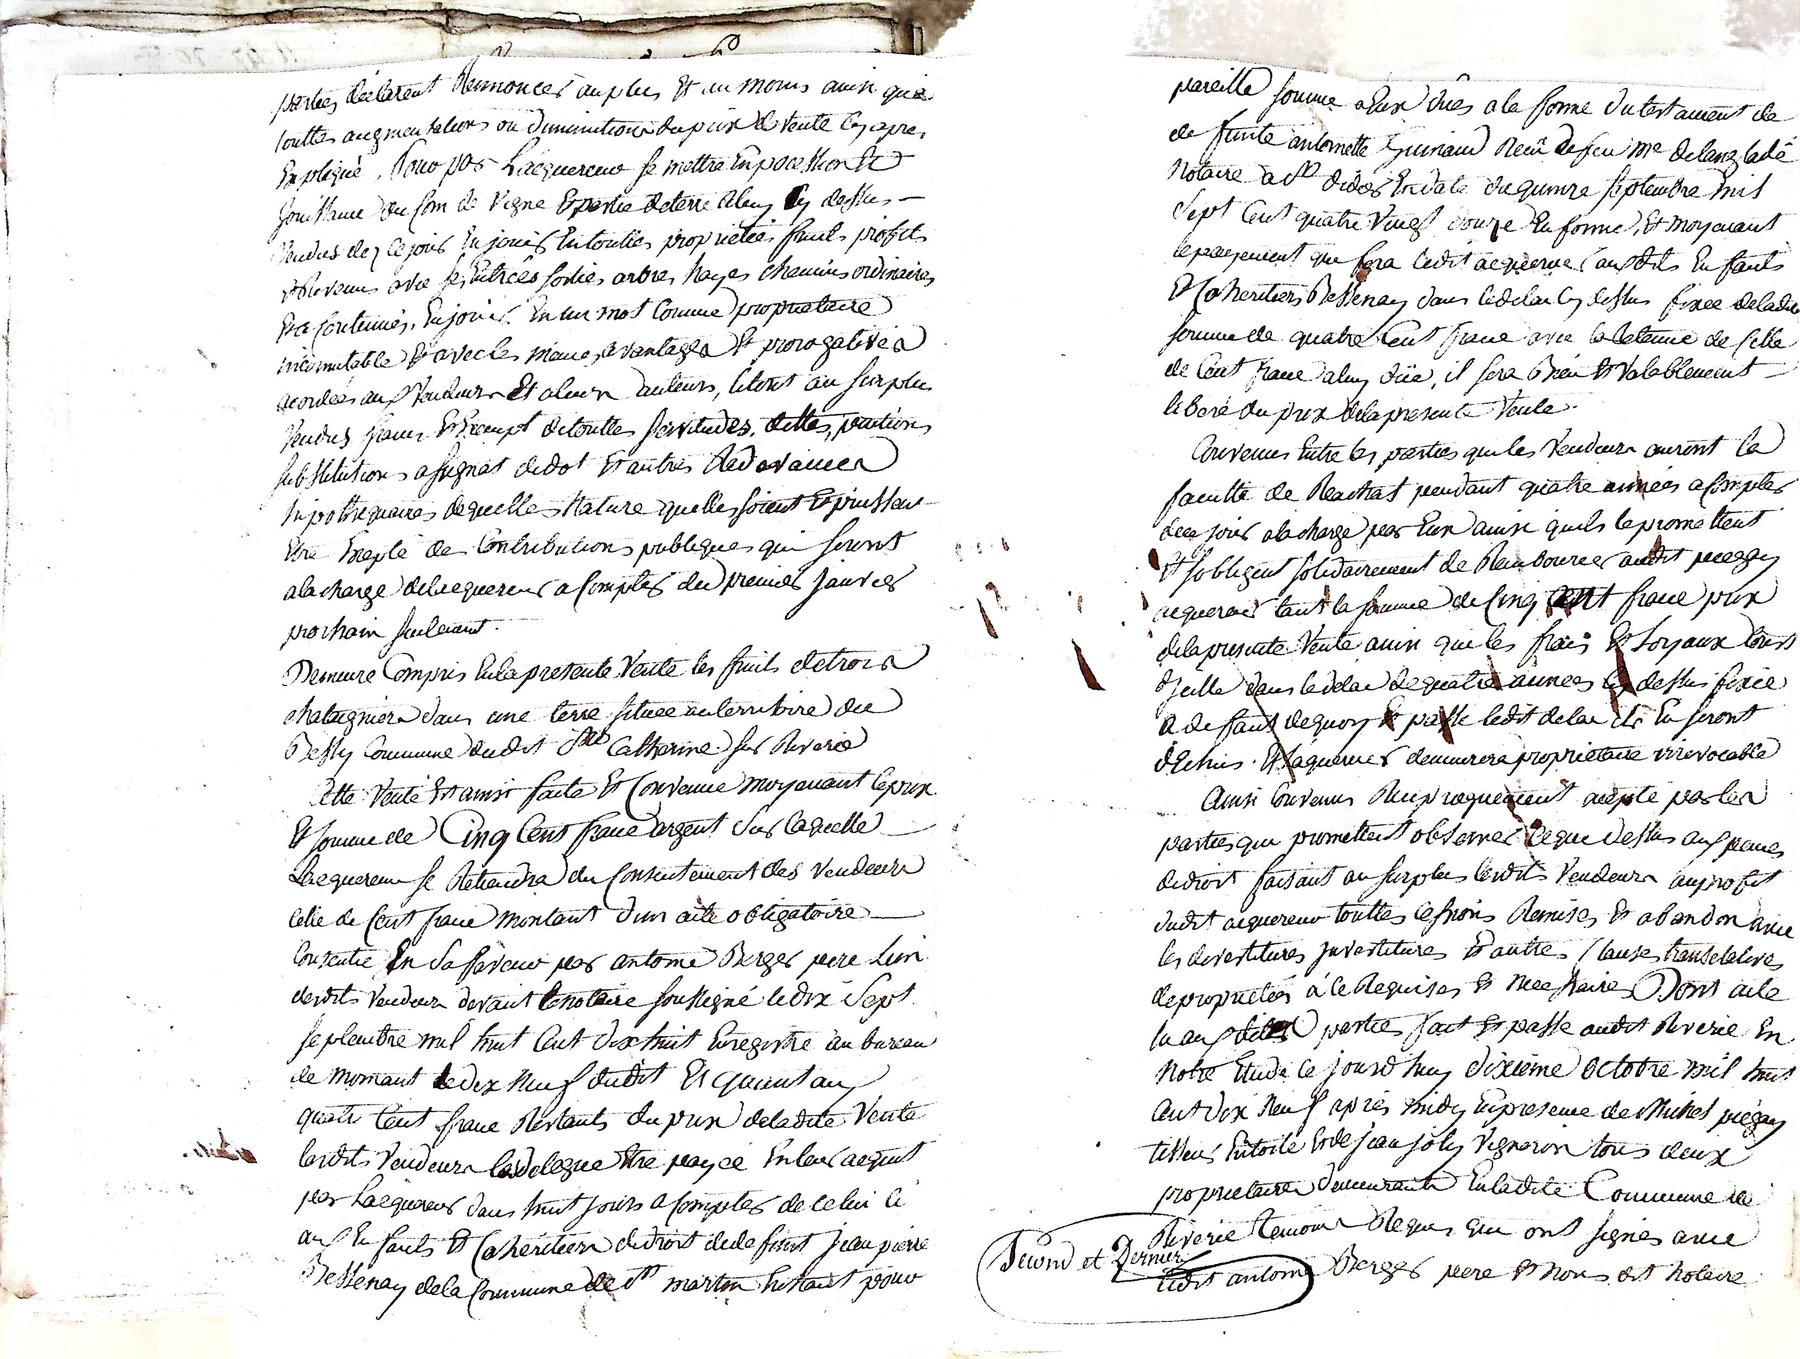 parties déclarent Renoncer au plus Et au moins ainsi qua
touttes augmentations ou diminutions du prix de vente cy apres
Expliqué, Pour par Lacquereur se mettre En possession Et
jouissance du som de Vigne & partie de terre alux Cy dessus
vendus dez ce jour En jouir En touttes proprietés fruits profits
& Revenus avec ses Entrées sorties arbres hayes chemins ordinaires
Et a Coutumés, En jouir En un mot Comme proprietaire
incomutable & avec les mêmes avantages Et prorogatives
acordées aux Vendeurs Et a leurs auteurs, le tout au surplus
Vendus franc & Exempt de touttes servitudes, dettes, pentions
substitutions assignat de dot Et autres Redevances
hipothequaires de quelles Nature quelles soient & puissent
Etre Excepté des Contributions publiques qui seront
a la charge de lacquereur a Compter du premier janvier
prochain seulement.
Demeure Compris En la presente Vente les fruits de trois
chataigniers dans une terre située au territoire du
Bessy Commune dudit Ste Catherine sur Riverie
Cette Vente Est ainsi faite Et Convenue moyenant le prix
Et somme de Cinq Cent franc argent sur laquelle
Lacquereur se Retiendra du Consentement des vendeurs
Celle de Cent franc montant d'un acte obligatoire
Consentie En sa faveur par antoine Berger pere L'un
desdits Vendeurs devant le notaire soussigné le dix Sept
septembre mil huit Cent dix huit Enregistré au bureau
de mornant le dix Neuf dudit Et quant aux
quatre Cent franc Restants du prix de ladite Vente
lesdits Vendeurs les delegue Etre payée En leur acquit
par Lacquereur dans huit jours a Compter de celui ci
aux Enfants & Cohéritiers de droit de defunt jean pierre
Bessenay de la Commune de St martin En haut pour
pareille somme a Eux dues a la forme du testament de
de funte antoinette Guinand Recu de feu me delanglade
Notaire a St didier En date du quinze septembre mil
sept Cent quatre Vingt douze En forme, Et moyenant
le payement que fera ledit acquereur auxdits Enfants
Et Cohéritiers Bessenay dans le delai Cy dessus fixée de ladite
somme de quatre Cent franc avec la Retenue de Celle
de Cent franc a luy düe, il sera Bien & Valablement
libéré du prix de la presente Vente.
Convenus Entre les parties que les Vendeurs auront la
faculté de Reachat pendant quatre années a Compter
de ce jour a la charge par Eux ainsi quils le promettent
Et sobligent solidairement de Rembourcer audit
acquereur tant la somme de Cinq Cent franc prix
de la presente Vente ainsi que les frais Et Loyaux Couts
dycelle dans le delai de quatre années Cy dessus fixée
a deffaut de quoy & passé ledit delai ils En seront
déchus. Et l'aquereur demeurera proprietaire irrevocable
Ainsi Convenus Reciproquement acepté par les
parties qui promettent observer ce que dessus aux peines
de droit faisant au surplus lesdits Vendeurs au profit
dudit acquereur touttes Cessions Remises & abandon avec
les devestitures investitures & autres Clauses translatives
de proprietées à ce Requises & necessaires, Dont acte
lu auxdites parties fait & passé audit Riverie En
Notre Etude ce jourd'huy dixième octobre mil huit
Cent dix Neuf après midy En presence de Michel piégay
tisseur En toile & de jean joly Vigneron tous deux
proprietaires demeurants En ladite Commune de
Riverie temoins Requis qui ont signés avec
Second et Dernier
ledit antoine Berger pere & Nous dit Notaire